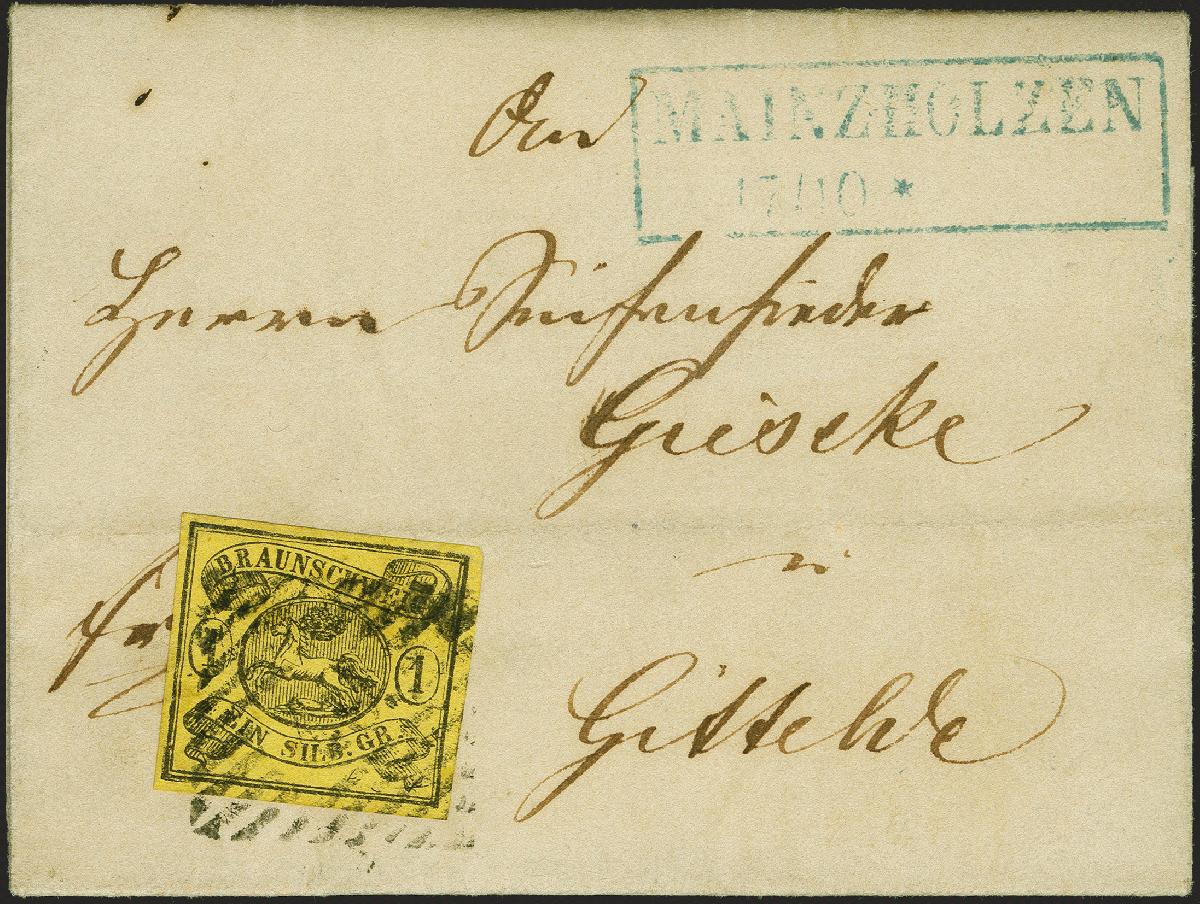 An
MAINZHOLZEN
17/10 *
Herrn Seifensieder
Gieseke
in
Gittelde
fr
BRAUNSCHWEIG
1
1
EIN SILB: GR.